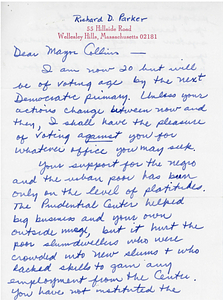 Richard D. Parker
55 Hillside Road
Wellesley Hills, Massachusetts 02181
Dear Mayor Collins—
I am now 20 but will
be of voting age by the next
Democratic primary. Unless your
actions change between now and
then, I shall have the pleasure
of voting against you for
whatever office you may seek.
Your support for the negro
and the urban poor has been
only on the level of platitudes.
The Prudential Center helped
big business and your own
outside image, but it hurt the
poor slumdwellers who were
crowded into new slums & who
lacked skills to gain any
employment from the Center.
You have not instituted the